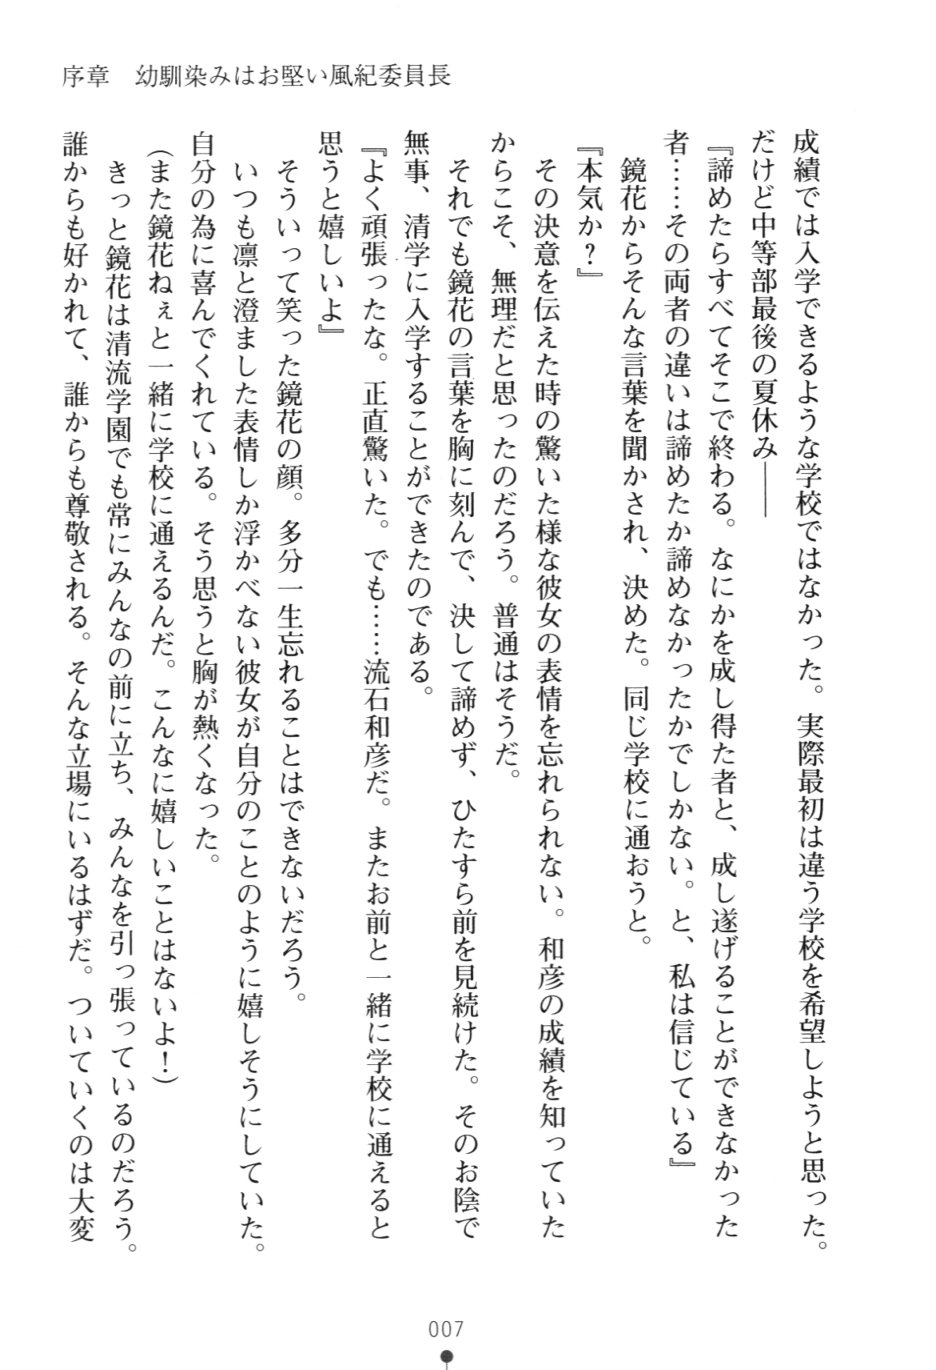 序章　幼馴染みはお堅い風紀委員長
成績では入学できるような学校ではなかった。実際最初は違う学校を希望しようと思った。
だけど中等部最後の夏休み――
『諦めたらすべてそこで終わる。なにかを成し得た者と、成し遂げることができなかった
者……その両者の違いは諦めたか諦めなかったかでしかない。と、私は信じている』
　鏡花からそんな言葉を聞かされ、決めた。同じ学校に通おうと。
『本気か？』
　その決意を伝えた時の驚いた様な彼女の表情を忘れられない。和彦の成績を知っていた
からこそ、無理だと思ったのだろう。普通はそうだ。
　それでも鏡花の言葉を胸に刻んで、決して諦めず、ひたすら前を見続けた。そのお陰で
無事、清学に入学することができたのである。
『よく頑張ったな。正直驚いた。でも……流石和彦だ。またお前と一緒に学校に通えると
思うと嬉しいよ』
　そういって笑った鏡花の顔。多分一生忘れることはできないだろう。
　いつも凛と澄ました表情しか浮かべない彼女が自分のことのように嬉しそうにしていた。
自分の為に喜んでくれている。そう思うと胸が熱くなった。
（また鏡花ねぇと一緒に学校に通えるんだ。こんなに嬉しいことはないよ！）
　きっと鏡花は清流学園でも常にみんなの前に立ち、みんなを引っ張っているのだろう。
誰からも好かれて、誰からも尊敬される。そんな立場にいるはずだ。ついていくのは大変
007